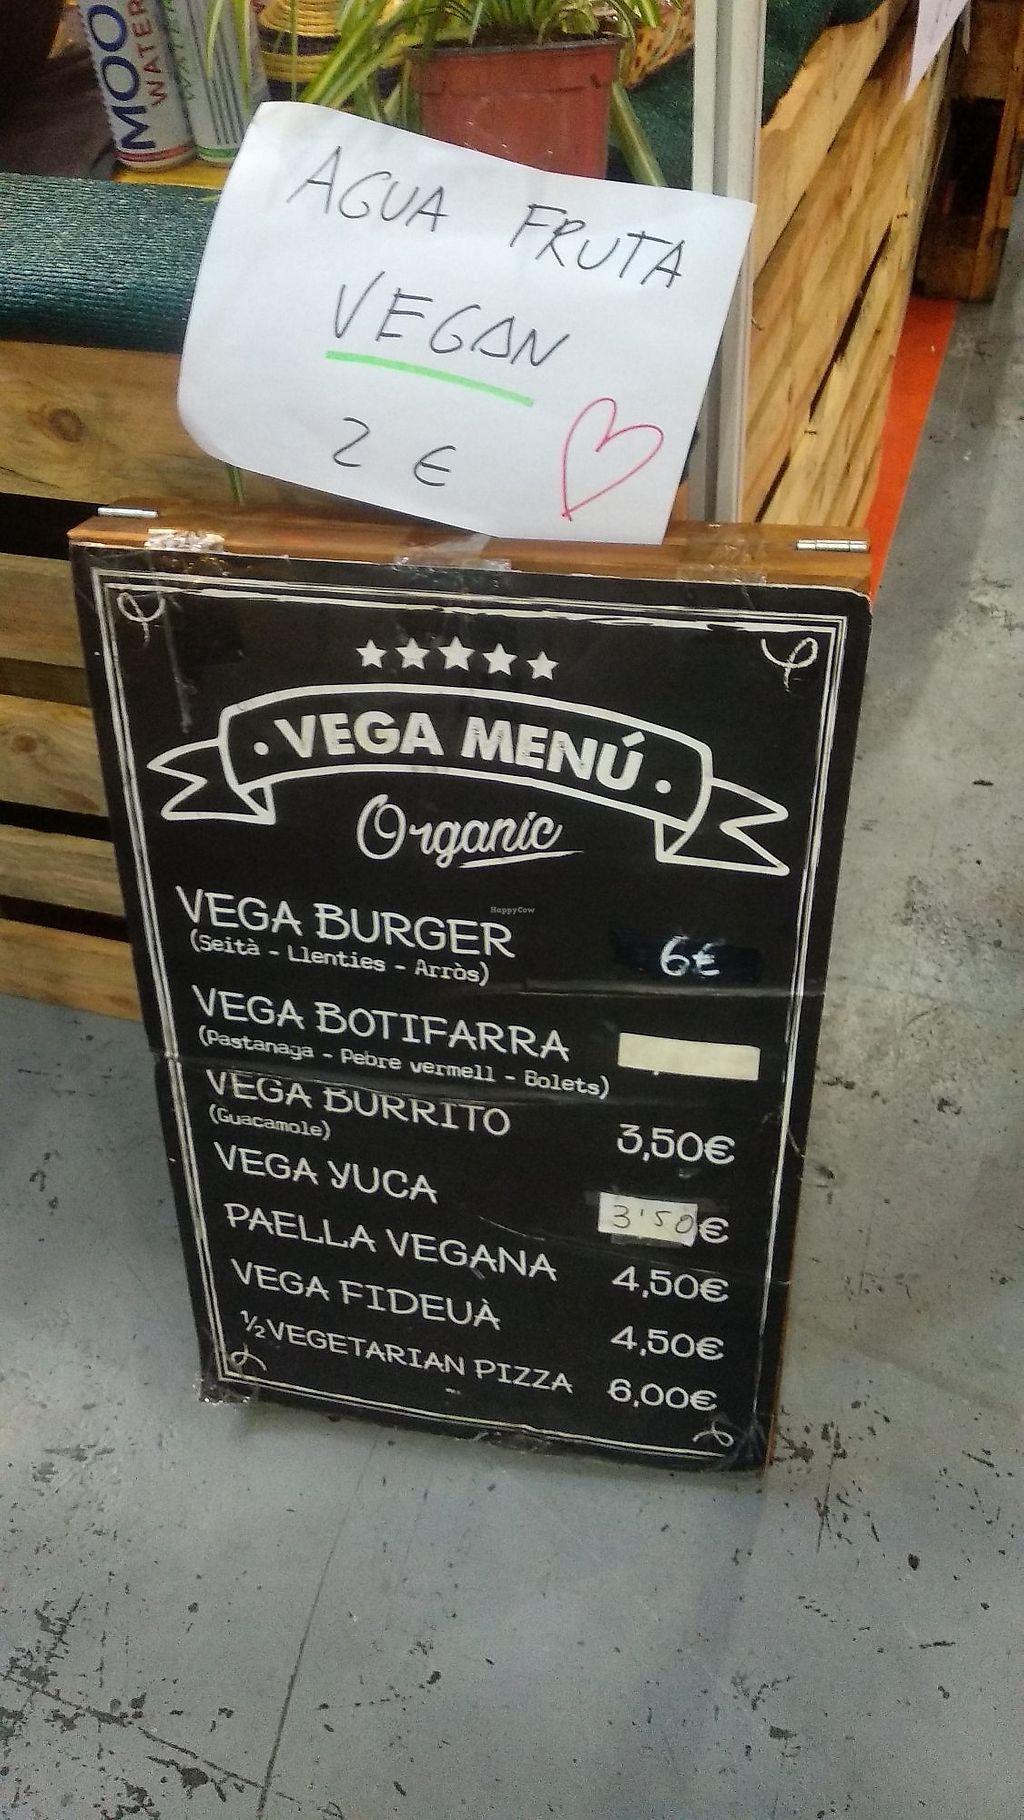 MOO
WATER
WATER
AGUA FRUTA
VEGAN
2 €
VEGA MENÚ
Organic
VEGA BURGER 6€
(Seità - Llenties - Arròs)
VEGA BOTIFARRA
(Pastanaga - Pebre vermell - Bolets)
VEGA BURRITO 3,50€
(Guacamole)
VEGA YUCA 3'50€
PAELLA VEGANA 4,50€
VEGA FIDEUÀ 4,50€
½ VEGETARIAN PIZZA 6,00€
HappyCow